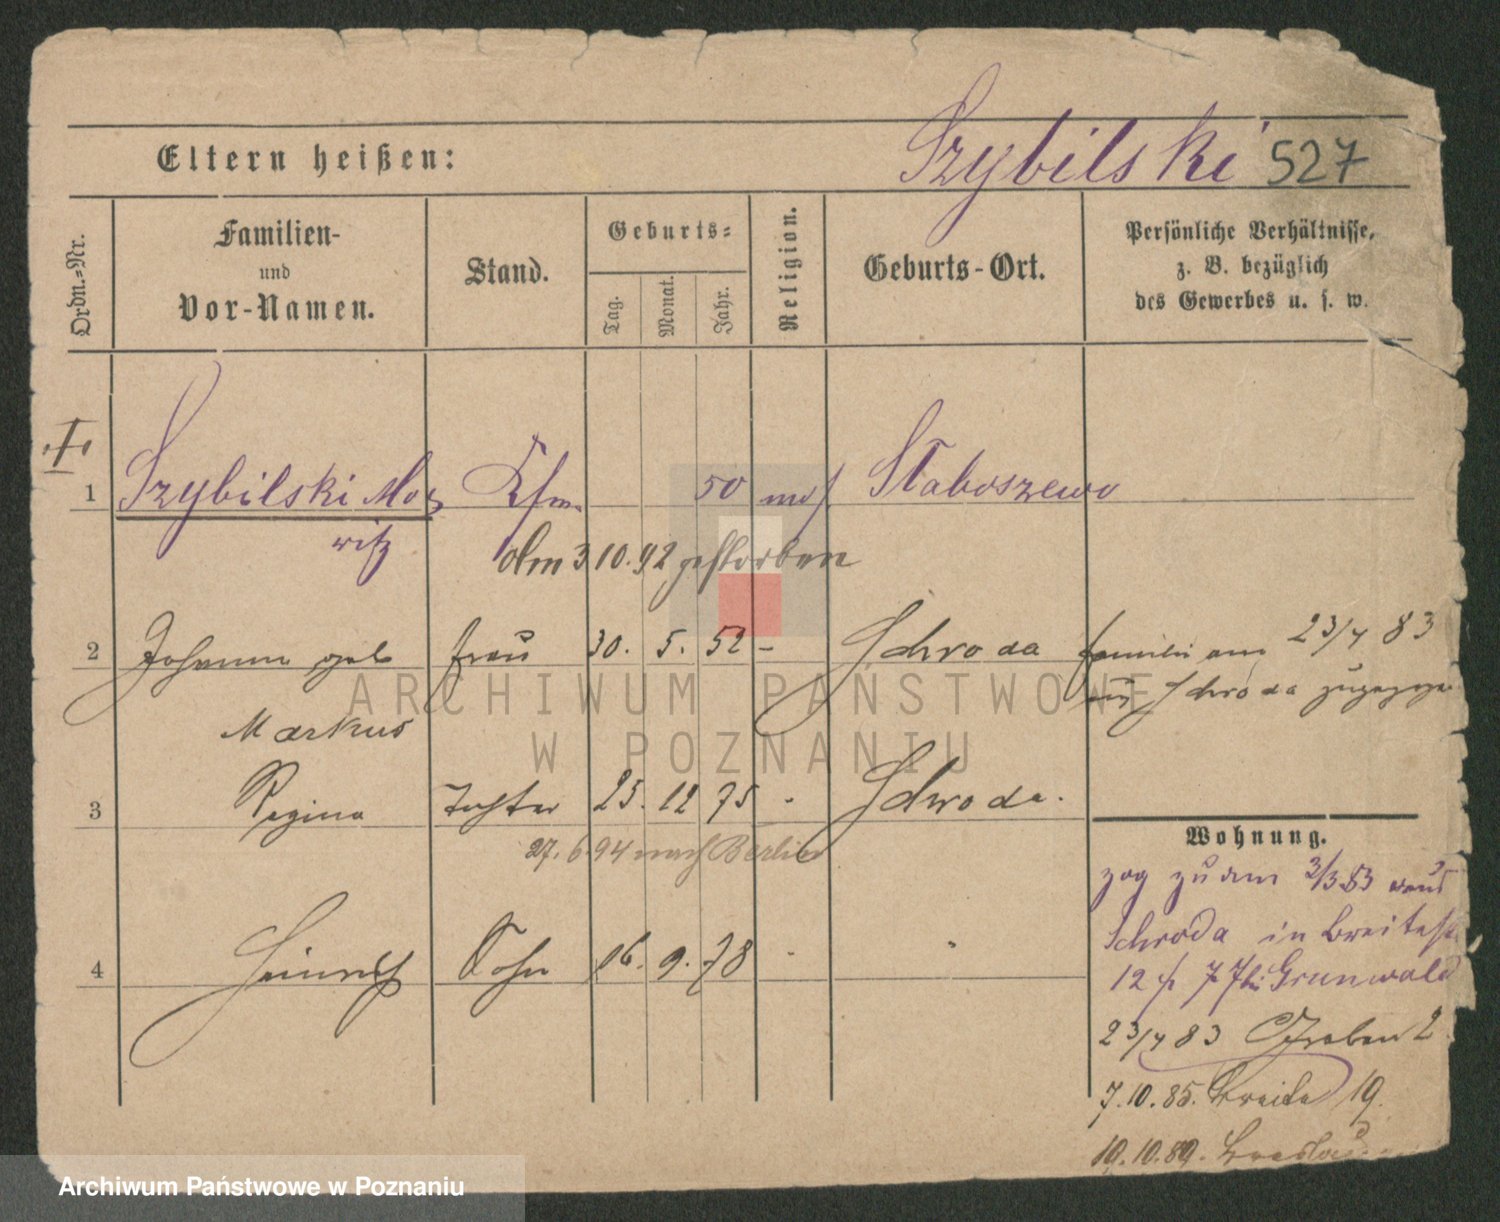 Eltern heißen:
Szybilski 527
Ordn.-Nr.
Familien-
und
Vor-Namen.
Stand.
Geburts-
Tag.
Monat.
Jahr.
Religion.
Geburts-Ort.
Persönliche Verhältnisse,
z. B. bezüglich
des Gewerbes u. s. w.
I
1 Szybilski Mo- Kfm. 50 mos. Staboszewo
ritz
Am 3 10. 92 gestorben
2 Johanna geb Frau 30. 5. 52 - Schroda Familie am 23/7 83
Markus
aus Schroda zugezogen
3 Regina Tochter 25. 12 75 - Schroda.
27. 6. 94 nach Berlin
4 Heinrich Sohn 16. 9. 78 - "
Wohnung.
zog zu am 2/3 83 von
Schroda in Breitestr
12 Grunwald
23/7 83 Graben 2
7. 10. 85. Breite 19.
19. 10. 89. Breslau
ARCHIWUM PAŃSTWOWE
W POZNANIU
Archiwum Państwowe w Poznaniu